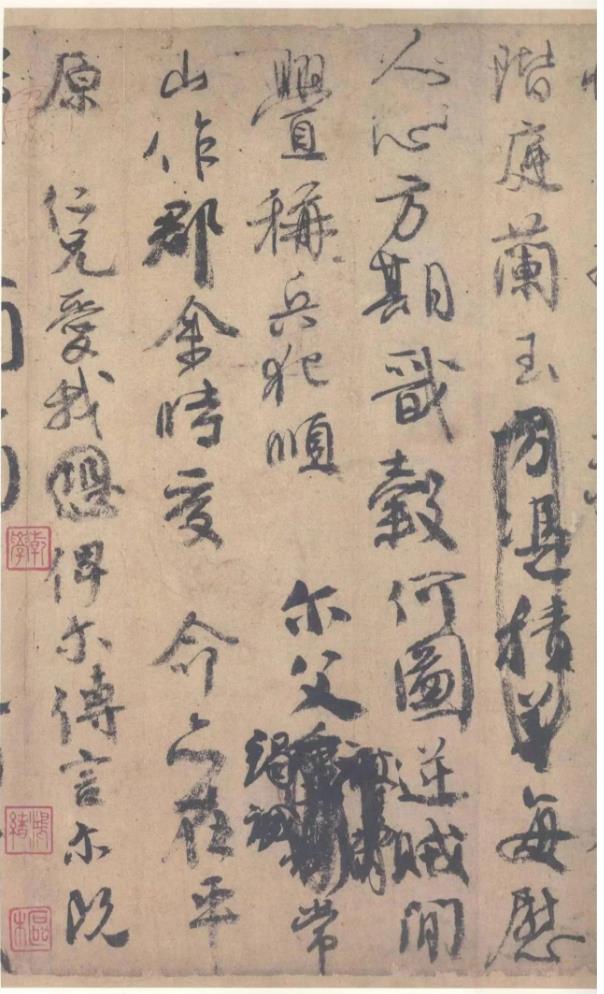 階庭蘭玉方憑積善每慰
人心方期戩穀何圖逆賊間
釁稱兵犯順 尔父竭誠常
山作郡余時受 命亦在平
原 仁兄愛我恐俾尔傳言尔既